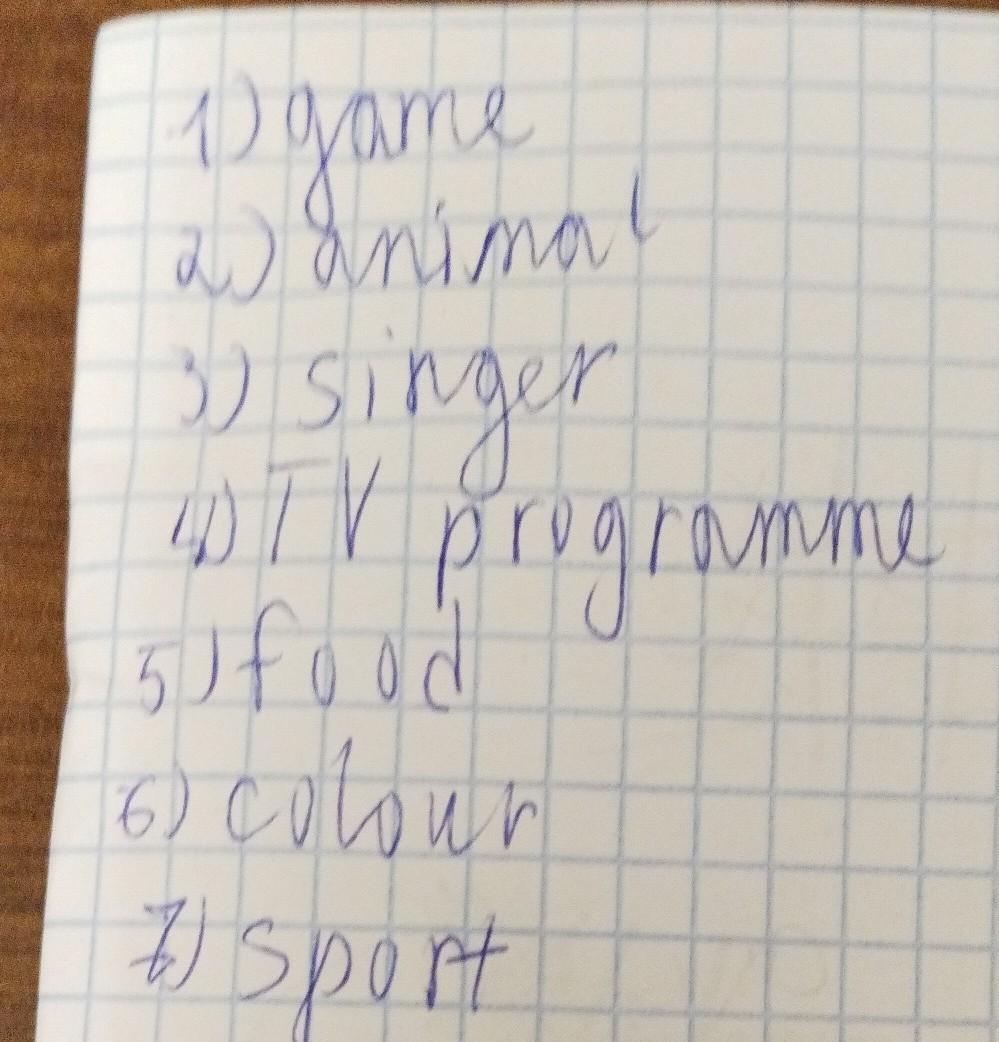 1) game
2) animal
3) singer
4) TV programme
5) food
6) colour
7) sport